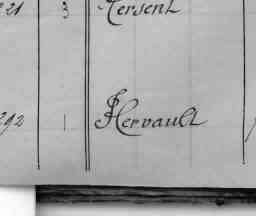 21 3 Hersent
292 1 Hervault